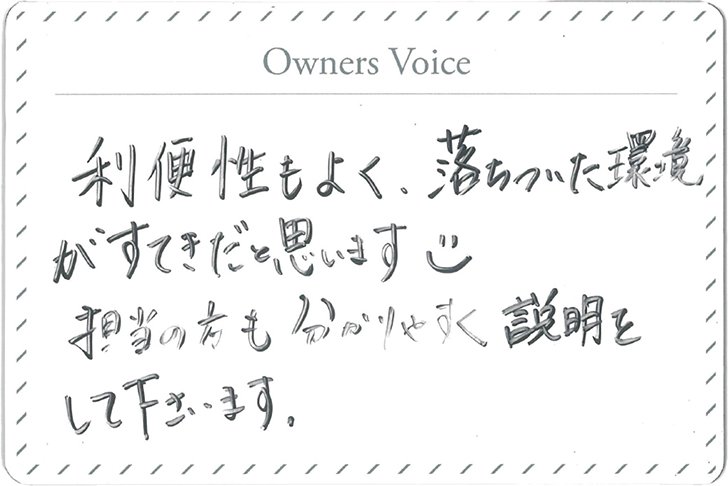 Owners Voice
利便性もよく、落ちついた環境
がすてきだと思います
担当の方も分かりやすく説明を
して下さいます。